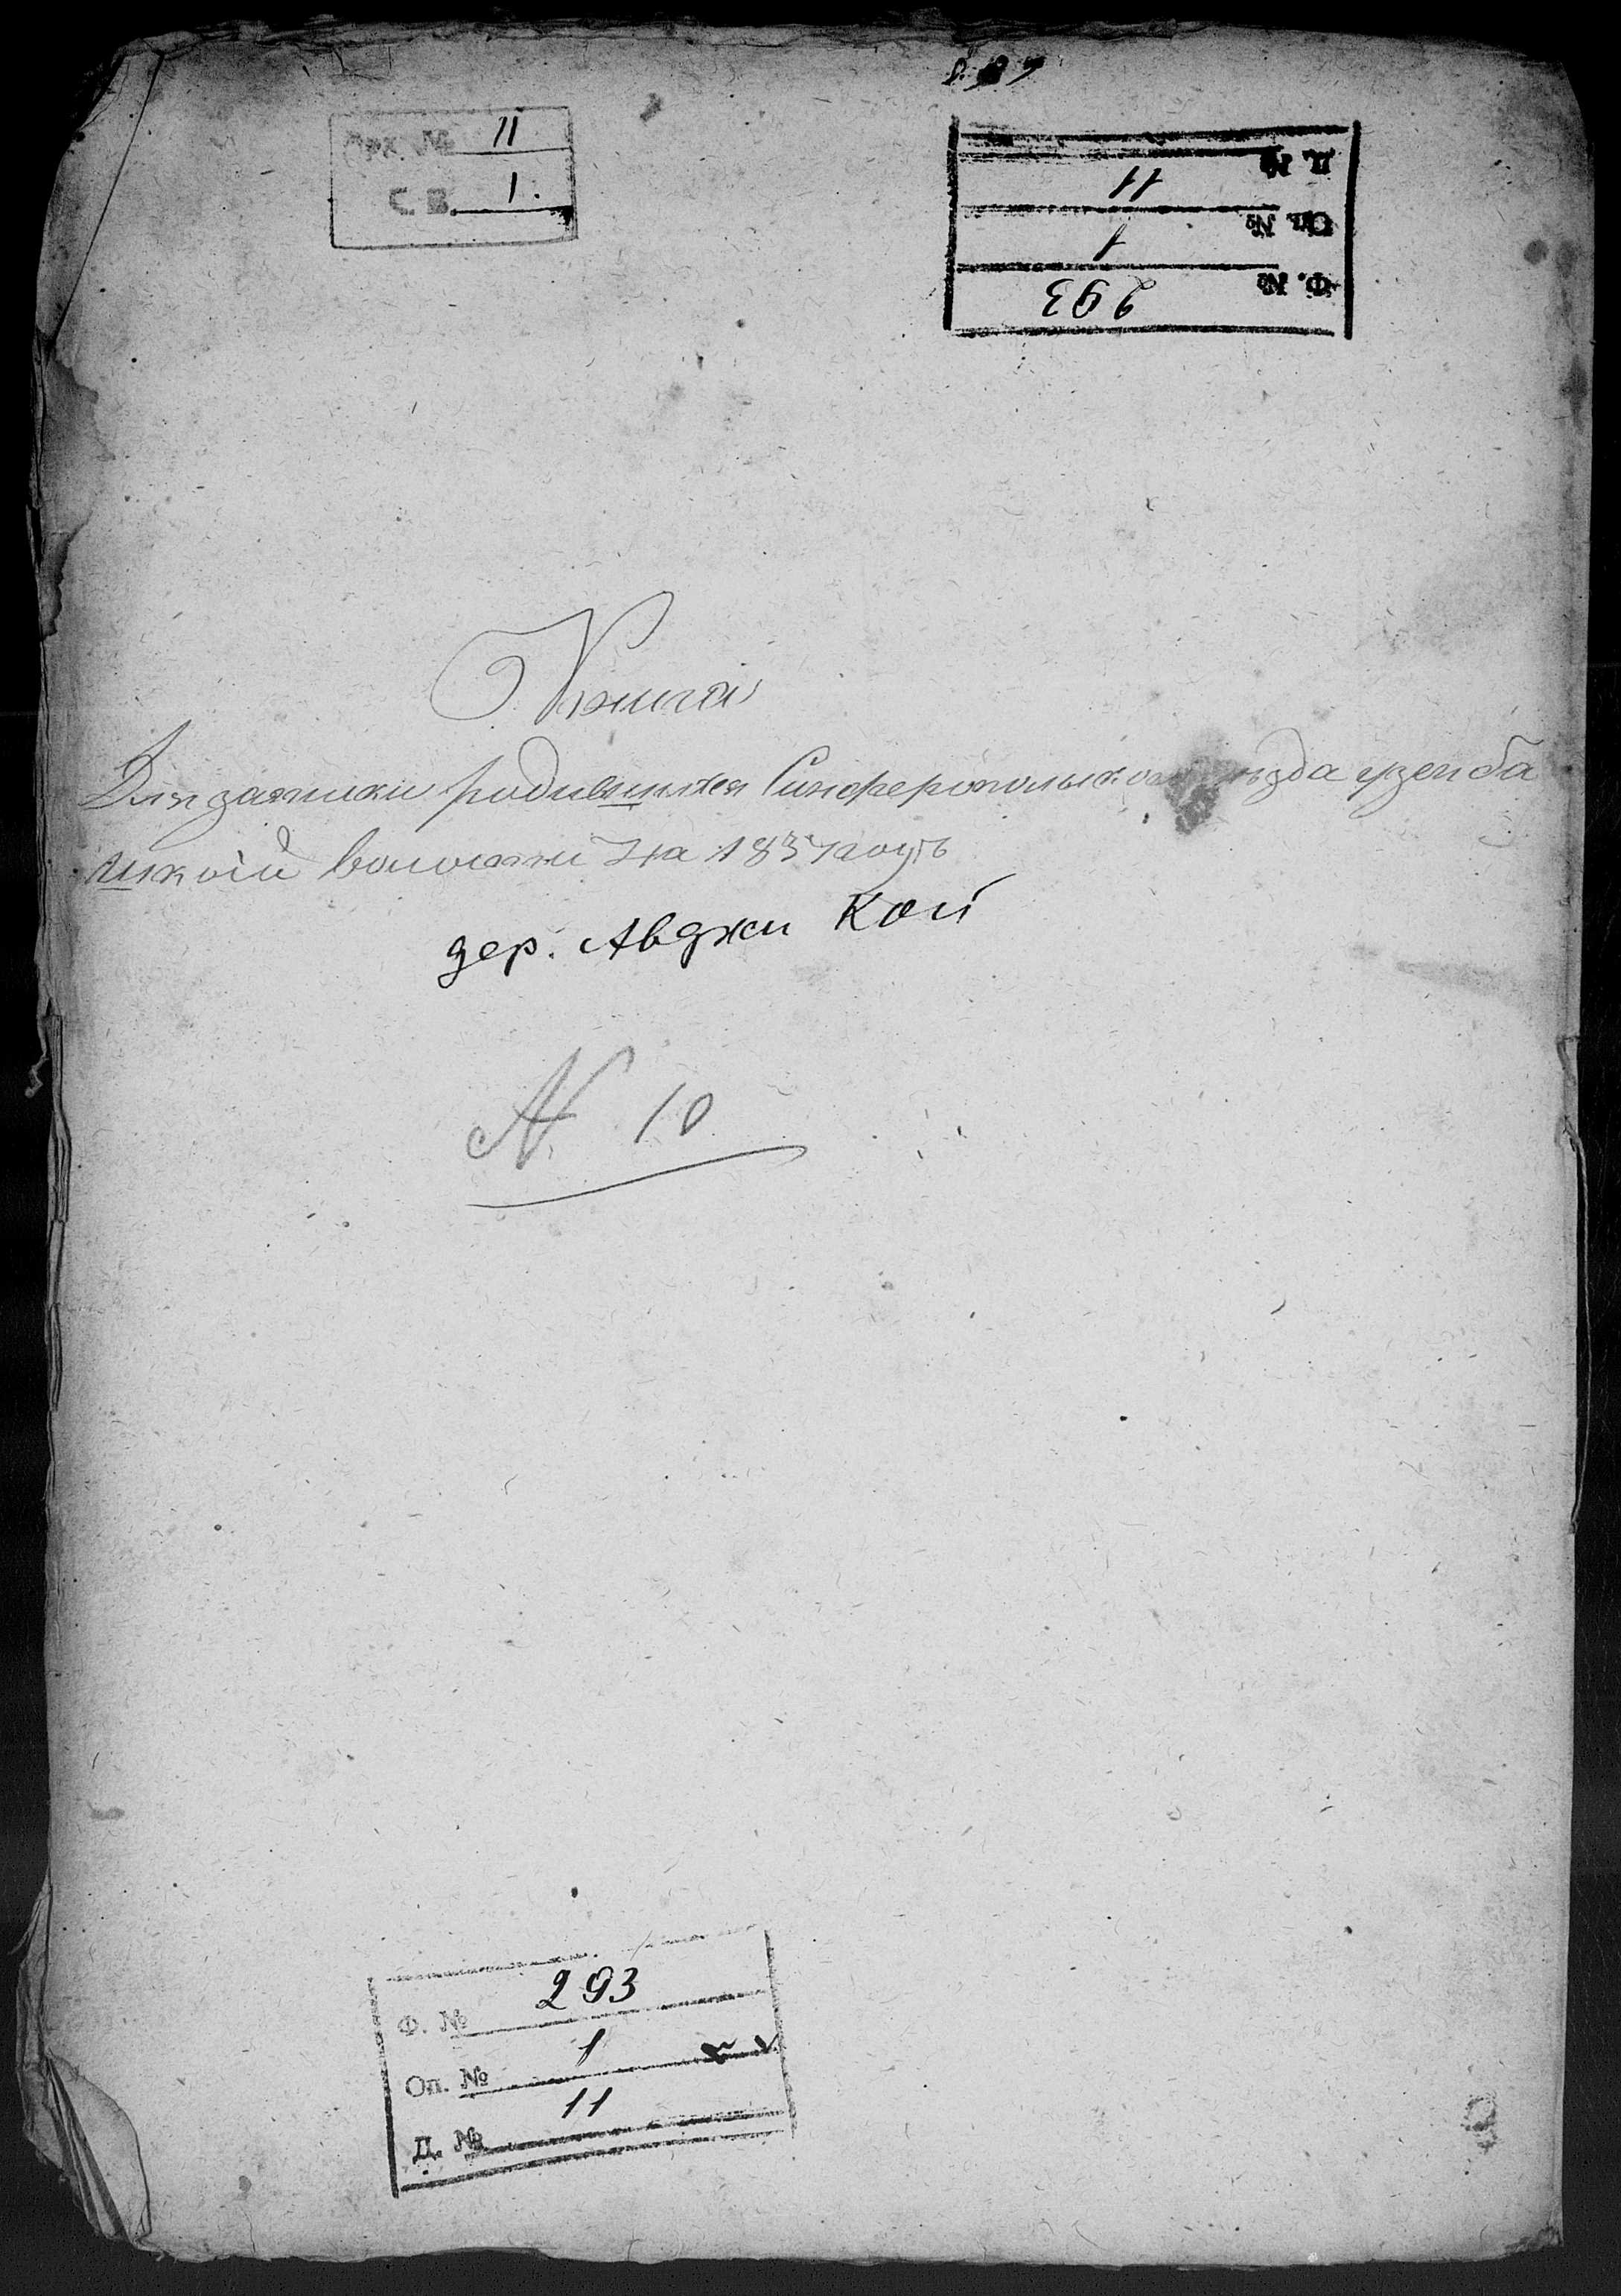 Арх. № 11
С. В. 1.
Д. № 11
Оп. № 1
Ф. № 293
Книга
Для записки родившихся Симферопольско уезда узенба
шкой волости На 1837 годъ
дер. Авджи Кой
N. 10
Ф. № 293
Оп. № 1
Д. № 11